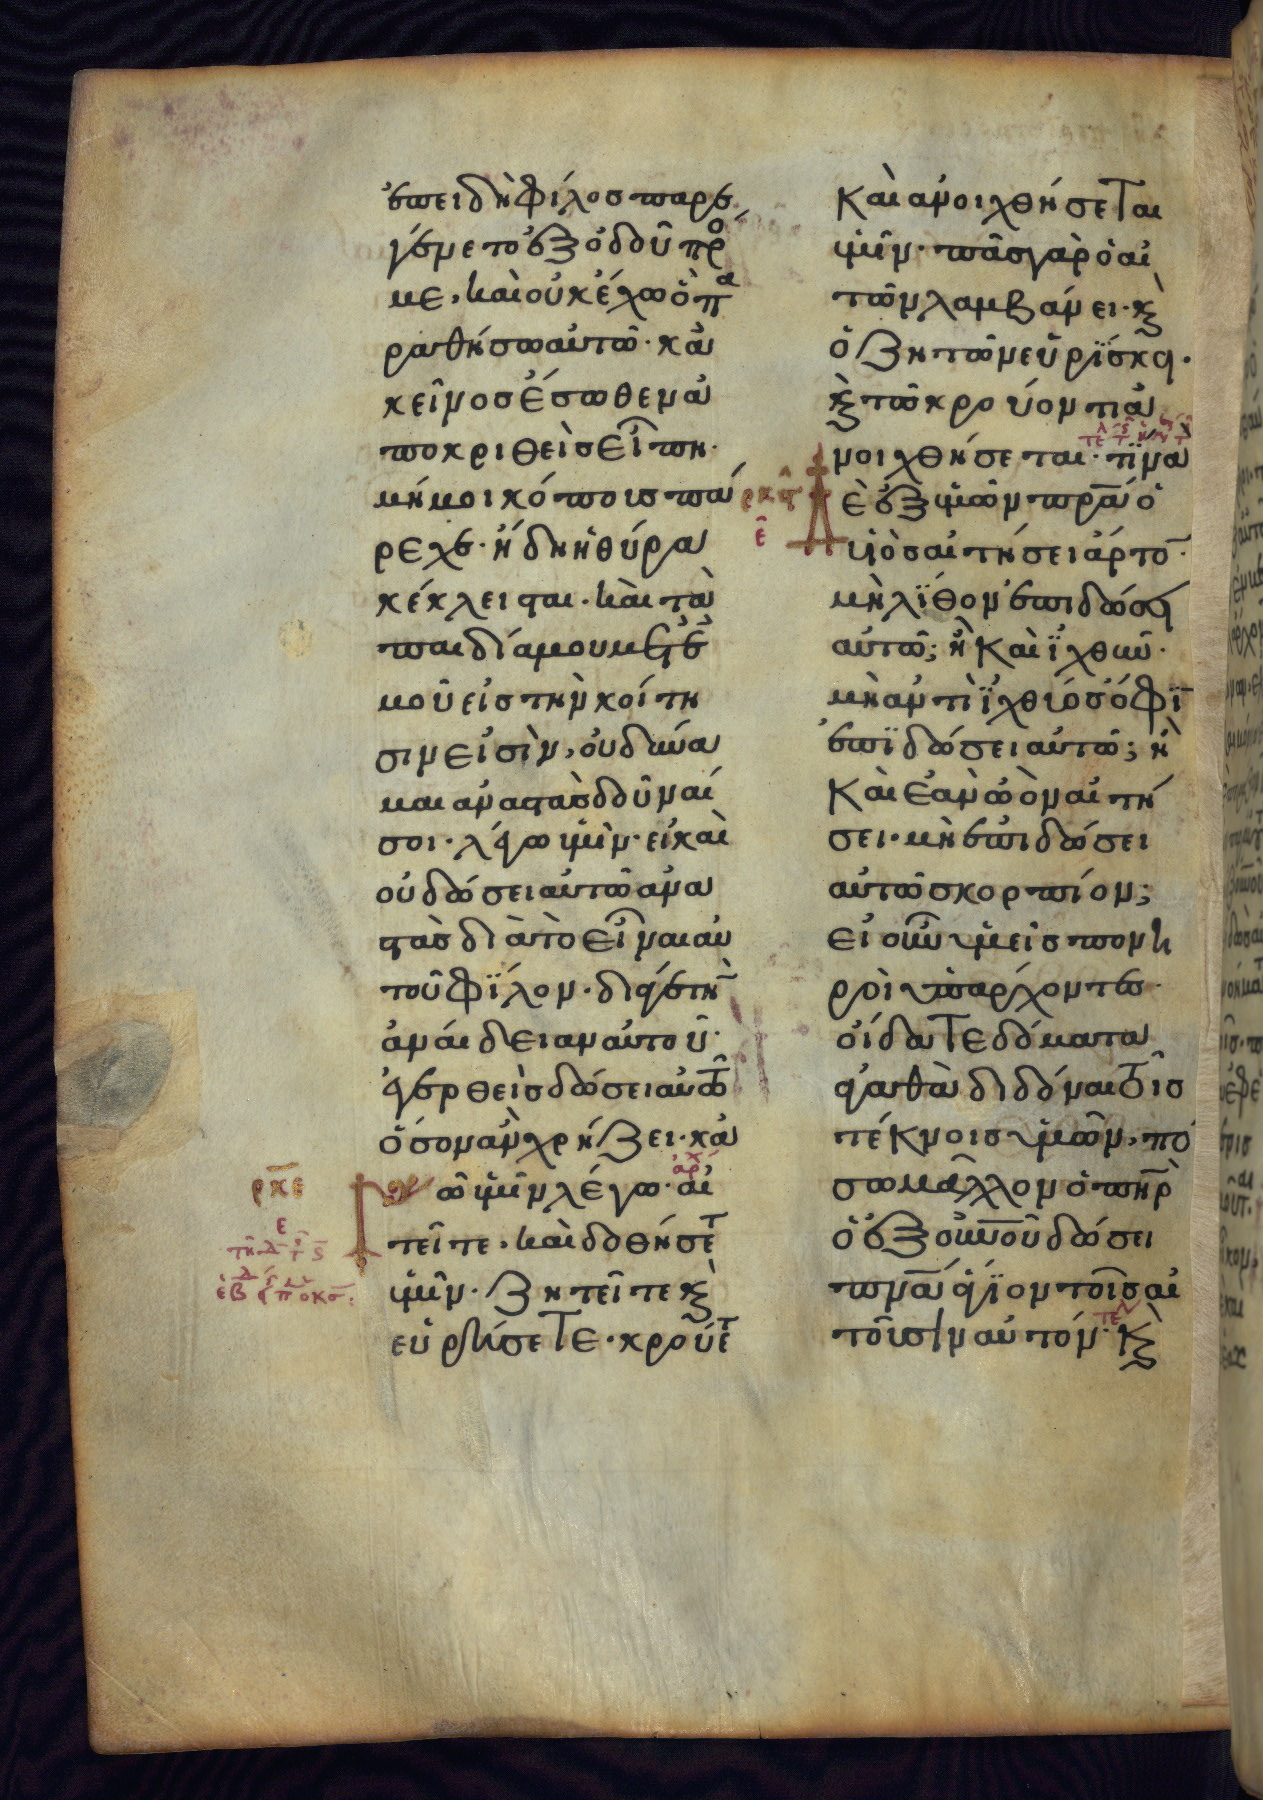 ἐπειδὴ φίλοσ παρε
γένετο ἐξ ὁδοῦ πρό
με, καὶ οὐκ ἔχω ὃ πα
ραθήσω αὐτῶ· κἀ
κεῖνοσ ἔσωθεν ἀ
ποκριθεὶσ εἴπη·
μή μοι κόπουσ πά
ρεχε· ἤδη ἡ θύρα
κέκλεισται· καὶ τὰ
παιδία μου μετ' ἐ
μοῦ εἰσ τὴν κοίτη
σιν εἰσὶν, οὐ δύνα
μαι ἀναστὰσ δοῦναί
σοι· λέγω ὑμῖν· εἰ καὶ
οὐ δώσει αὐτῶ ἀνα
στὰσ διὰ τὸ εἶναι αὐ
τοῦ φΐλον· διά γε τὴν
ἀναίδειαν αὐτοῦ·
ἐγερθεὶσ δώσει αὐτῶ
ὅσον ἂν χρήζει· κἀ
ρκε
γὼ ὑμῖν λέγω· αἰ
τεῖτε· καὶ δοθήσετ
ὑμῖν· ζητεῖτε κ
εὑρήσετε· κρούετ
καὶ ἀνοιχθήσεται
ὑμῖν· πᾶσ γὰρ ὁ αἰ
τῶν λαμβάνει· κ
ὁ ζητῶν εὑρΐσκει·
κ τῶ κρούοντι ἀ
νοιχθήσεται· τΐνα
δὲ ἐξ ὑμῶν πρα ὁ
υἱὸσ αἰτήσει ἄρτο·
μὴ λΐθον ἐπιδώσει
αὐτῶ; ἢ καὶ ΐχθὺν·
μὴ ἀντὶ ΐχθύοσ ὄφϊ
ἐπϊδώσει αὐτῶ; ἢ
καὶ ἐὰν ὠὸν αἰτή
σει· μὴ ἐπιδώσει
αὐτῶ σκορπίον;
εἰ οὖν ὑμεῖσ πονη
ροὶ ὑπάρχοντεσ·
οἴδατε δόματα
ἀγαθὰ διδόναι τοῖσ
τέκνοισ ὑμῶν, πό
σω μᾶλλον ὁ πηρ
ὁ ἐξ οὐνοῦ δώσει
πνα ἅγϊον τοῖσ αἰ
τοῦσιν αὐτόν· κ